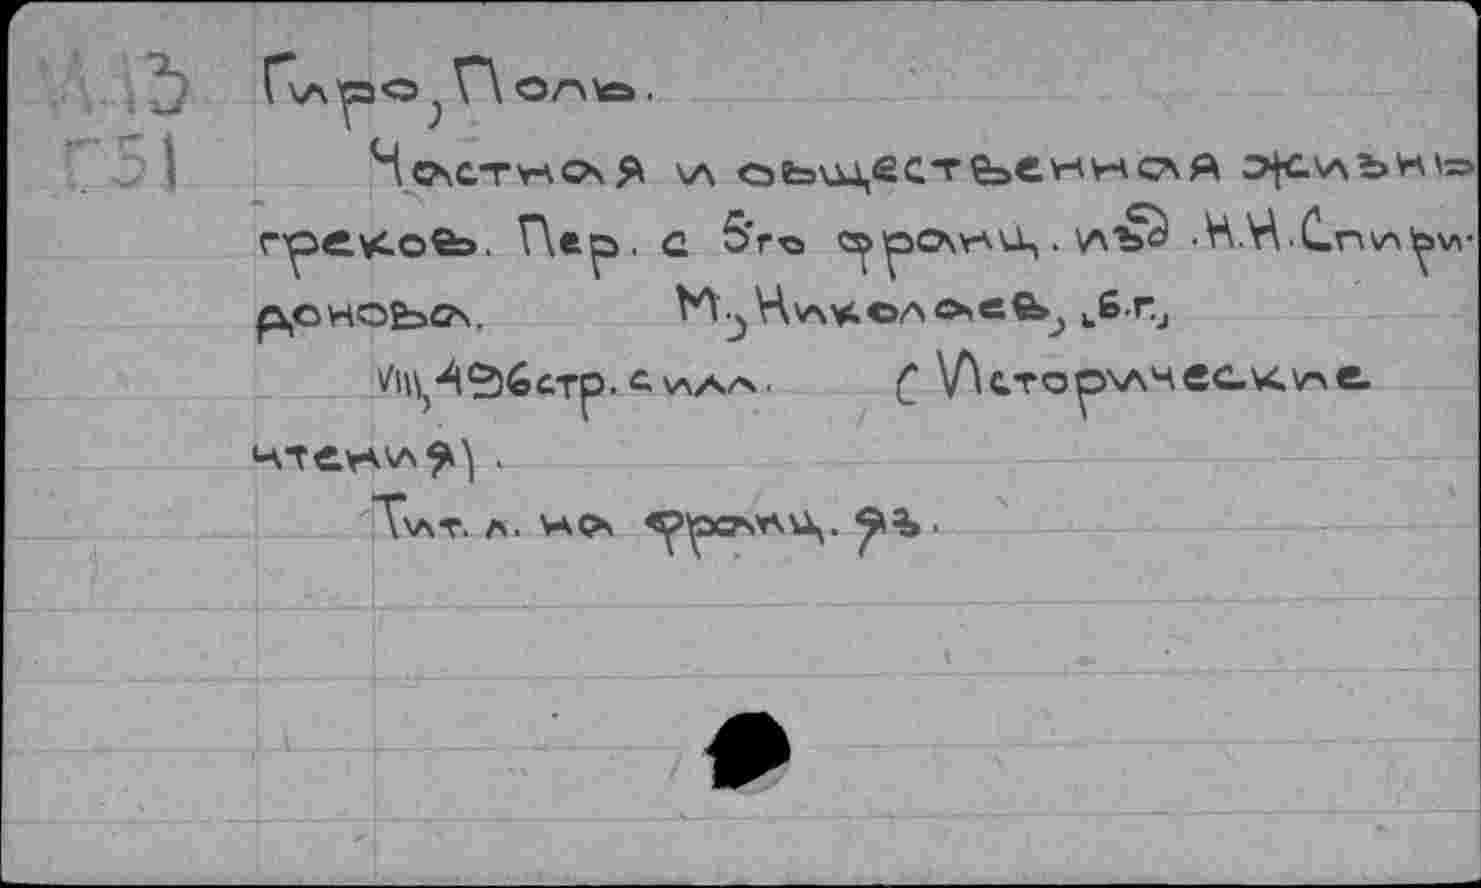 Гиро, Поль.
Частная и общественная жизнь
греков. Пер. с 5го франц. изд. Н.И. Спири-
донова. М., Николаев, б.г.,
496 стр. с илл. (Исторические
чтения).
Тит. л. на франц. яз.
Г51